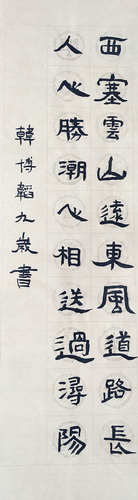 西塞雲山遠東風道路長
人心勝潮心相送過潯陽
韓博韜九歲書